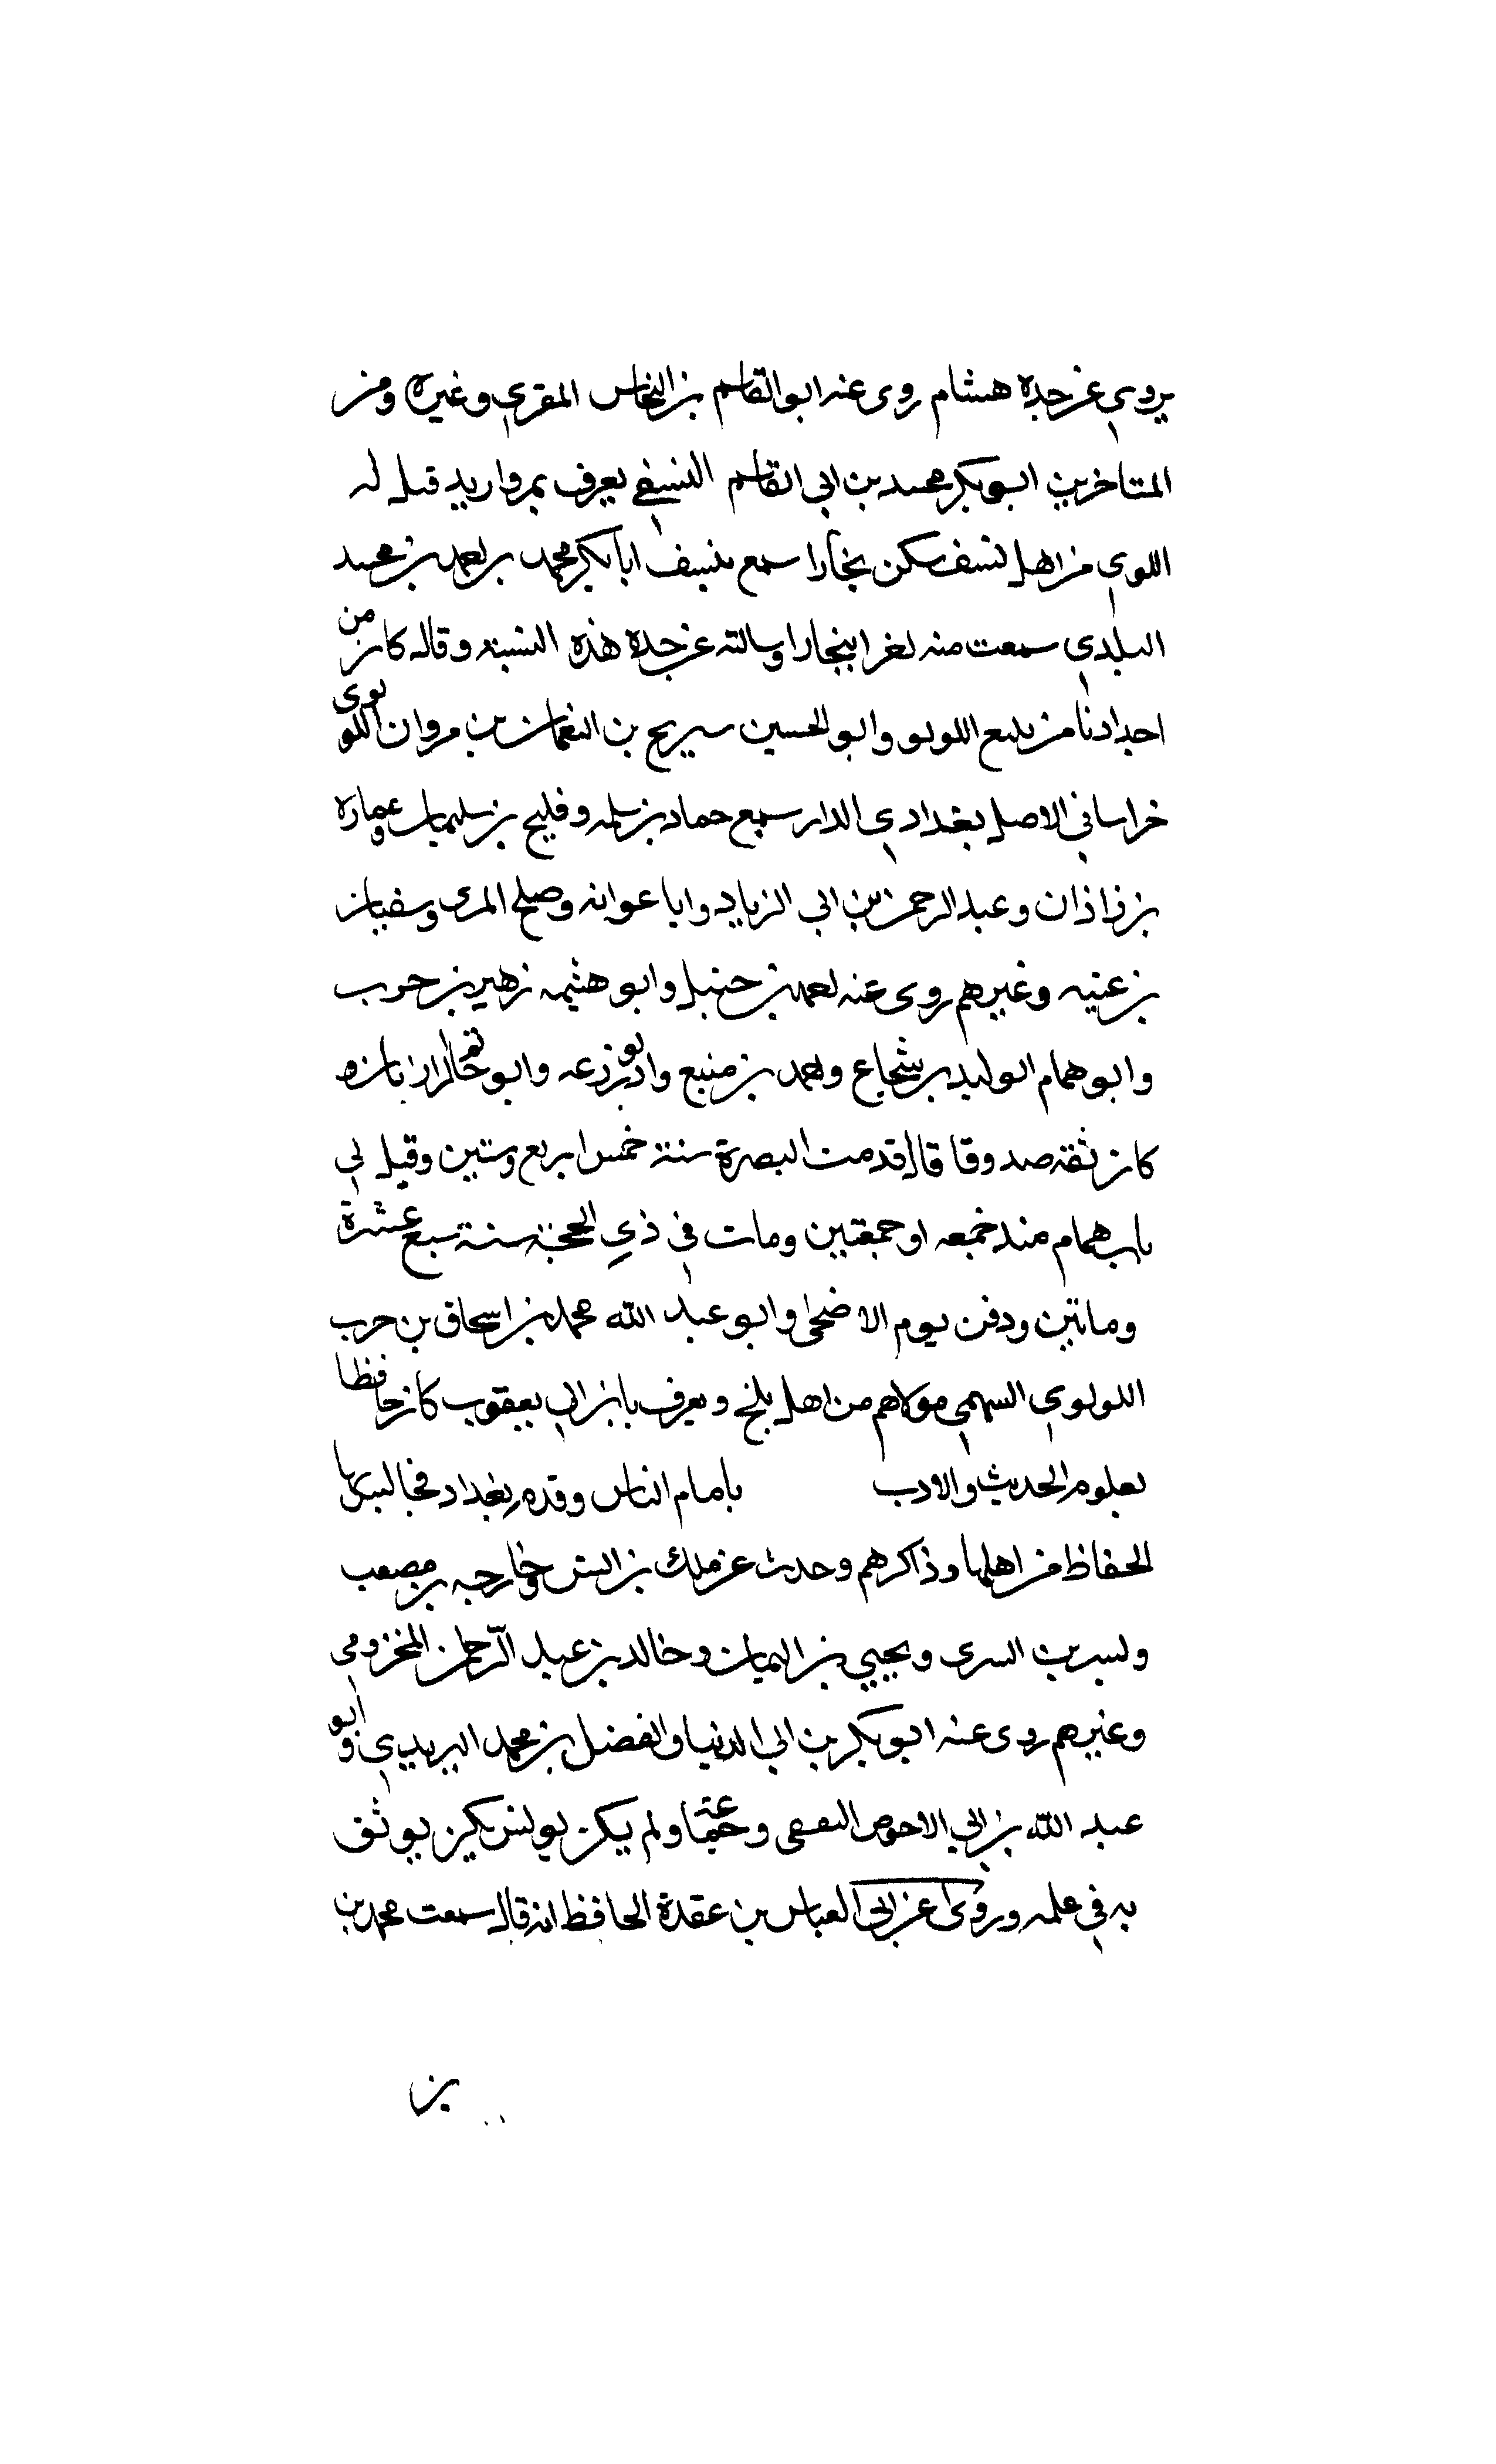 يروي عن جده هشام روى عنه ابو القاسم بن النخاس المقري وغيره ومن
المتاخرين ابو بكر محمد بن ابي القاسم النسفي يعرف بمرواريد قيل له
اللوي من اهل نسف سكن بخارا سمع بنسف ابا بكر محمد بن احمد بن محمد
البلدي سمعت منه نفرا ببخارا وسالته عن جده هذه النسبة وقال كان من
احدادنا من يبيع اللولو وابو الحسين سريج بن النعمان بن مروان اللولوي
خراساني الاصل بغدادي الدار سمع حماد بن سلمه وفليح بن سليمان وعماره
بن زاذان وعبد الرحمن بن ابي الزياد وابا عوانه وصلح المري وسفيان
بن عتيه وغيرهم روى عنه احمد بن حنبل وابو هثيمه زهير بن حرب
وابو همام الوليد بن شجاع واحمد بن منيع وابو زرعه وابو حاتم الرازيان
كان ثقه صدوقا قال قدمت البصرة سنة خمس اربع وستين وقيل لي
همام منذ جمعه او جمعتين ومات في ذي الحجة سنة سبع عشرة
وماتين ودفن يوم الاضحى وابو عبد الله محمد بن اسحاق بن حرب
اللولوي السهمي مولاهم من اهل بلخ ويعرف بابن ابي يعقوب كان حافظا
بعلوم الحديث والادب بامام الناس وقدم بغداد فجالس بها
الحفاظ من اهلها وذاكرهم وحدث عن ملك بن انس وخارجه بن مصعب
وبسر بن السري ويحيي بن اليمان وخالد بن عبد الرحمن المخزومي
وغيرهم روى عنه ابو بكر بن ابي الدنيا والفضل بن محمد اليزيدي وابو
عبد الله بن ابي الاحوص الثقفي وجماعة ولم يكن يوثق
به في علمه وروى عن ابي العباس بن عقدة الحافظ انه قال سمعت محمد بن
بن